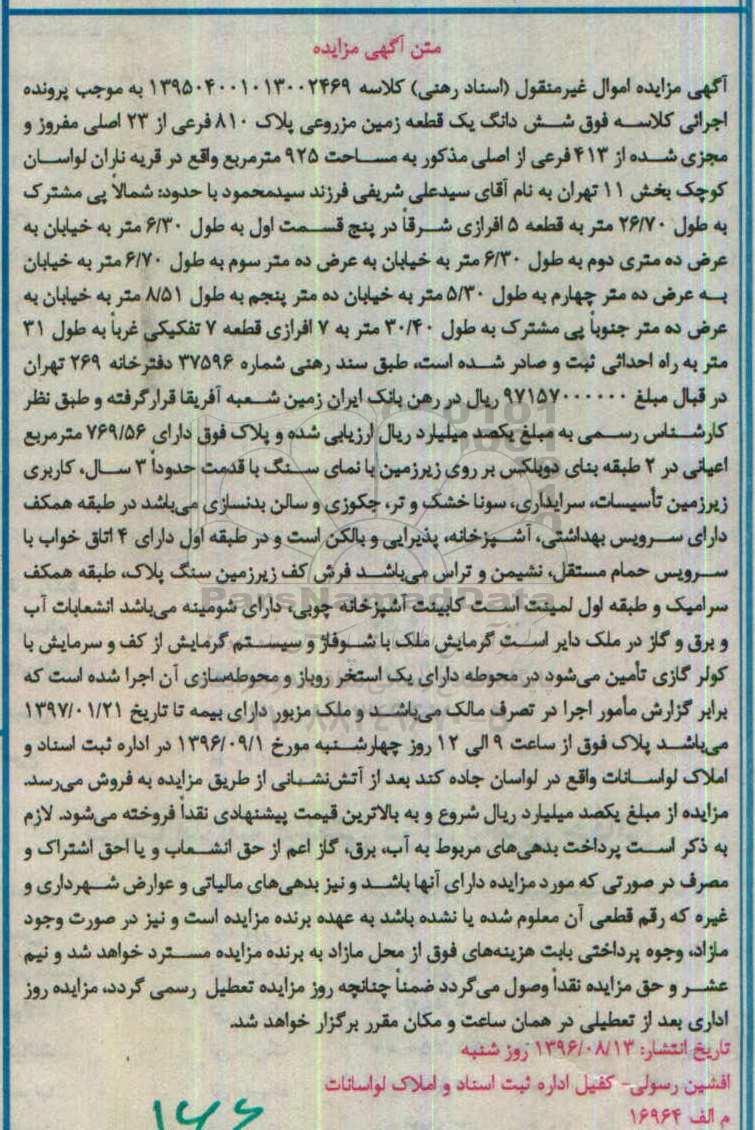 متن آگهی مزایده
آگهی مزایده اموال غیرمنقول (اسناد رهنی) کلاسه ۱۳۹۵۰۴۰۰۱۰۱۳۰۰۲۴۶۹ به موجب پرونده
اجرائی کلاسه فوق شش دانگ یک قطعه زمین مزروعی پلاک ۸۱۰ فرعی از ۲۳ اصلی مفروز و
مجزی شده از ۴۱۳ فرعی از اصلی مذکور به مساحت ۹۲۵ مترمربع واقع در قریه ناران لواسان
کوچک بخش ۱۱ تهران به نام آقای سیدعلی شریفی فرزند سیدمحمود با حدود: شمالاً پی مشترک
به طول ۲۶/۷۰ متر به قطعه ۵ افرازی شرقاً در پنج قسمت اول به طول ۶/۳۰ متر به خیابان به
عرض ده متری دوم به طول ۶/۳۰ متر به خیابان به عرض ده متر سوم به طول ۶/۷۰ متر به خیابان
به عرض ده متر چهارم به طول ۵/۳۰ متر به خیابان ده متر پنجم به طول ۸/۵۱ متر به خیابان به
عرض ده متر جنوباً پی مشترک به طول ۳۰/۴۰ متر به ۷ افرازی قطعه ۷ تفکیکی غرباً به طول ۳۱
متر به راه احداثی ثبت و صادر شده است، طبق سند رهنی شماره ۳۷۵۹۶ دفترخانه ۲۶۹ تهران
در قبال مبلغ ۹۷۱۵۷۰۰۰۰۰۰ ریال در رهن بانک ایران زمین شعبه آفریقا قرارگرفته و طبق نظر
کارشناس رسمی به مبلغ یکصد میلیارد ریال ارزیابی شده و پلاک فوق دارای ۷۶۹/۵۶ مترمربع
اعیانی در ۲ طبقه بنای دوبلکس بر روی زیرزمین با نمای سنگ با قدمت حدوداً ۳ سال، کاربری
زیرزمین تأسیسات، سرایداری، سونا خشک و تر، جکوزی و سالن بدنسازی می‌باشد در طبقه همکف
دارای سرویس بهداشتی، آشپزخانه، پذیرایی و بالکن است و در طبقه اول دارای ۴ اتاق خواب با
سرویس حمام مستقل، نشیمن و تراس می‌باشد فرش کف زیرزمین سنگ پلاک، طبقه همکف
سرامیک و طبقه اول لمینت است کابینت آشپزخانه چوبی، دارای شومینه می‌باشد انشعابات آب
و برق و گاز در ملک دایر است گرمایش ملک با شوفاژ و سیستم گرمایش از کف و سرمایش با
کولر گازی تأمین می‌شود در محوطه دارای یک استخر روباز و محوطه‌سازی آن اجرا شده است که
برابر گزارش مأمور اجرا در تصرف مالک می‌باشد و ملک مزبور دارای بیمه تا تاریخ ۱۳۹۷/۰۱/۲۱
می‌باشد پلاک فوق از ساعت ۹ الی ۱۲ روز چهارشنبه مورخ ۱۳۹۶/۰۹/۱ در اداره ثبت اسناد و
املاک لواسانات واقع در لواسان جاده کند بعد از آتش‌نشانی از طریق مزایده به فروش می‌رسد.
مزایده از مبلغ یکصد میلیارد ریال شروع و به بالاترین قیمت پیشنهادی نقداً فروخته می‌شود. لازم
به ذکر است پرداخت بدهی‌های مربوط به آب، برق، گاز اعم از حق انشعاب و یا احق اشتراک و
مصرف در صورتی که مورد مزایده دارای آنها باشد و نیز بدهی‌های مالیاتی و عوارض شهرداری و
غیره که رقم قطعی آن معلوم شده یا نشده باشد به عهده برنده مزایده است و نیز در صورت وجود
مازاد، وجوه پرداختی بابت هزینه‌های فوق از محل مازاد به برنده مزایده مسترد خواهد شد و نیم
عشر و حق مزایده نقداً وصول می‌گردد ضمناً چنانچه روز مزایده تعطیل رسمی گردد، مزایده روز
اداری بعد از تعطیلی در همان ساعت و مکان مقرر برگزار خواهد شد.
تاریخ انتشار: ۱۳۹۶/۰۸/۱۳ روز شنبه
افشین رسولی- کفیل اداره ثبت اسناد و املاک لواسانات
م الف ۱۶۹۶۴
ParsNamadData